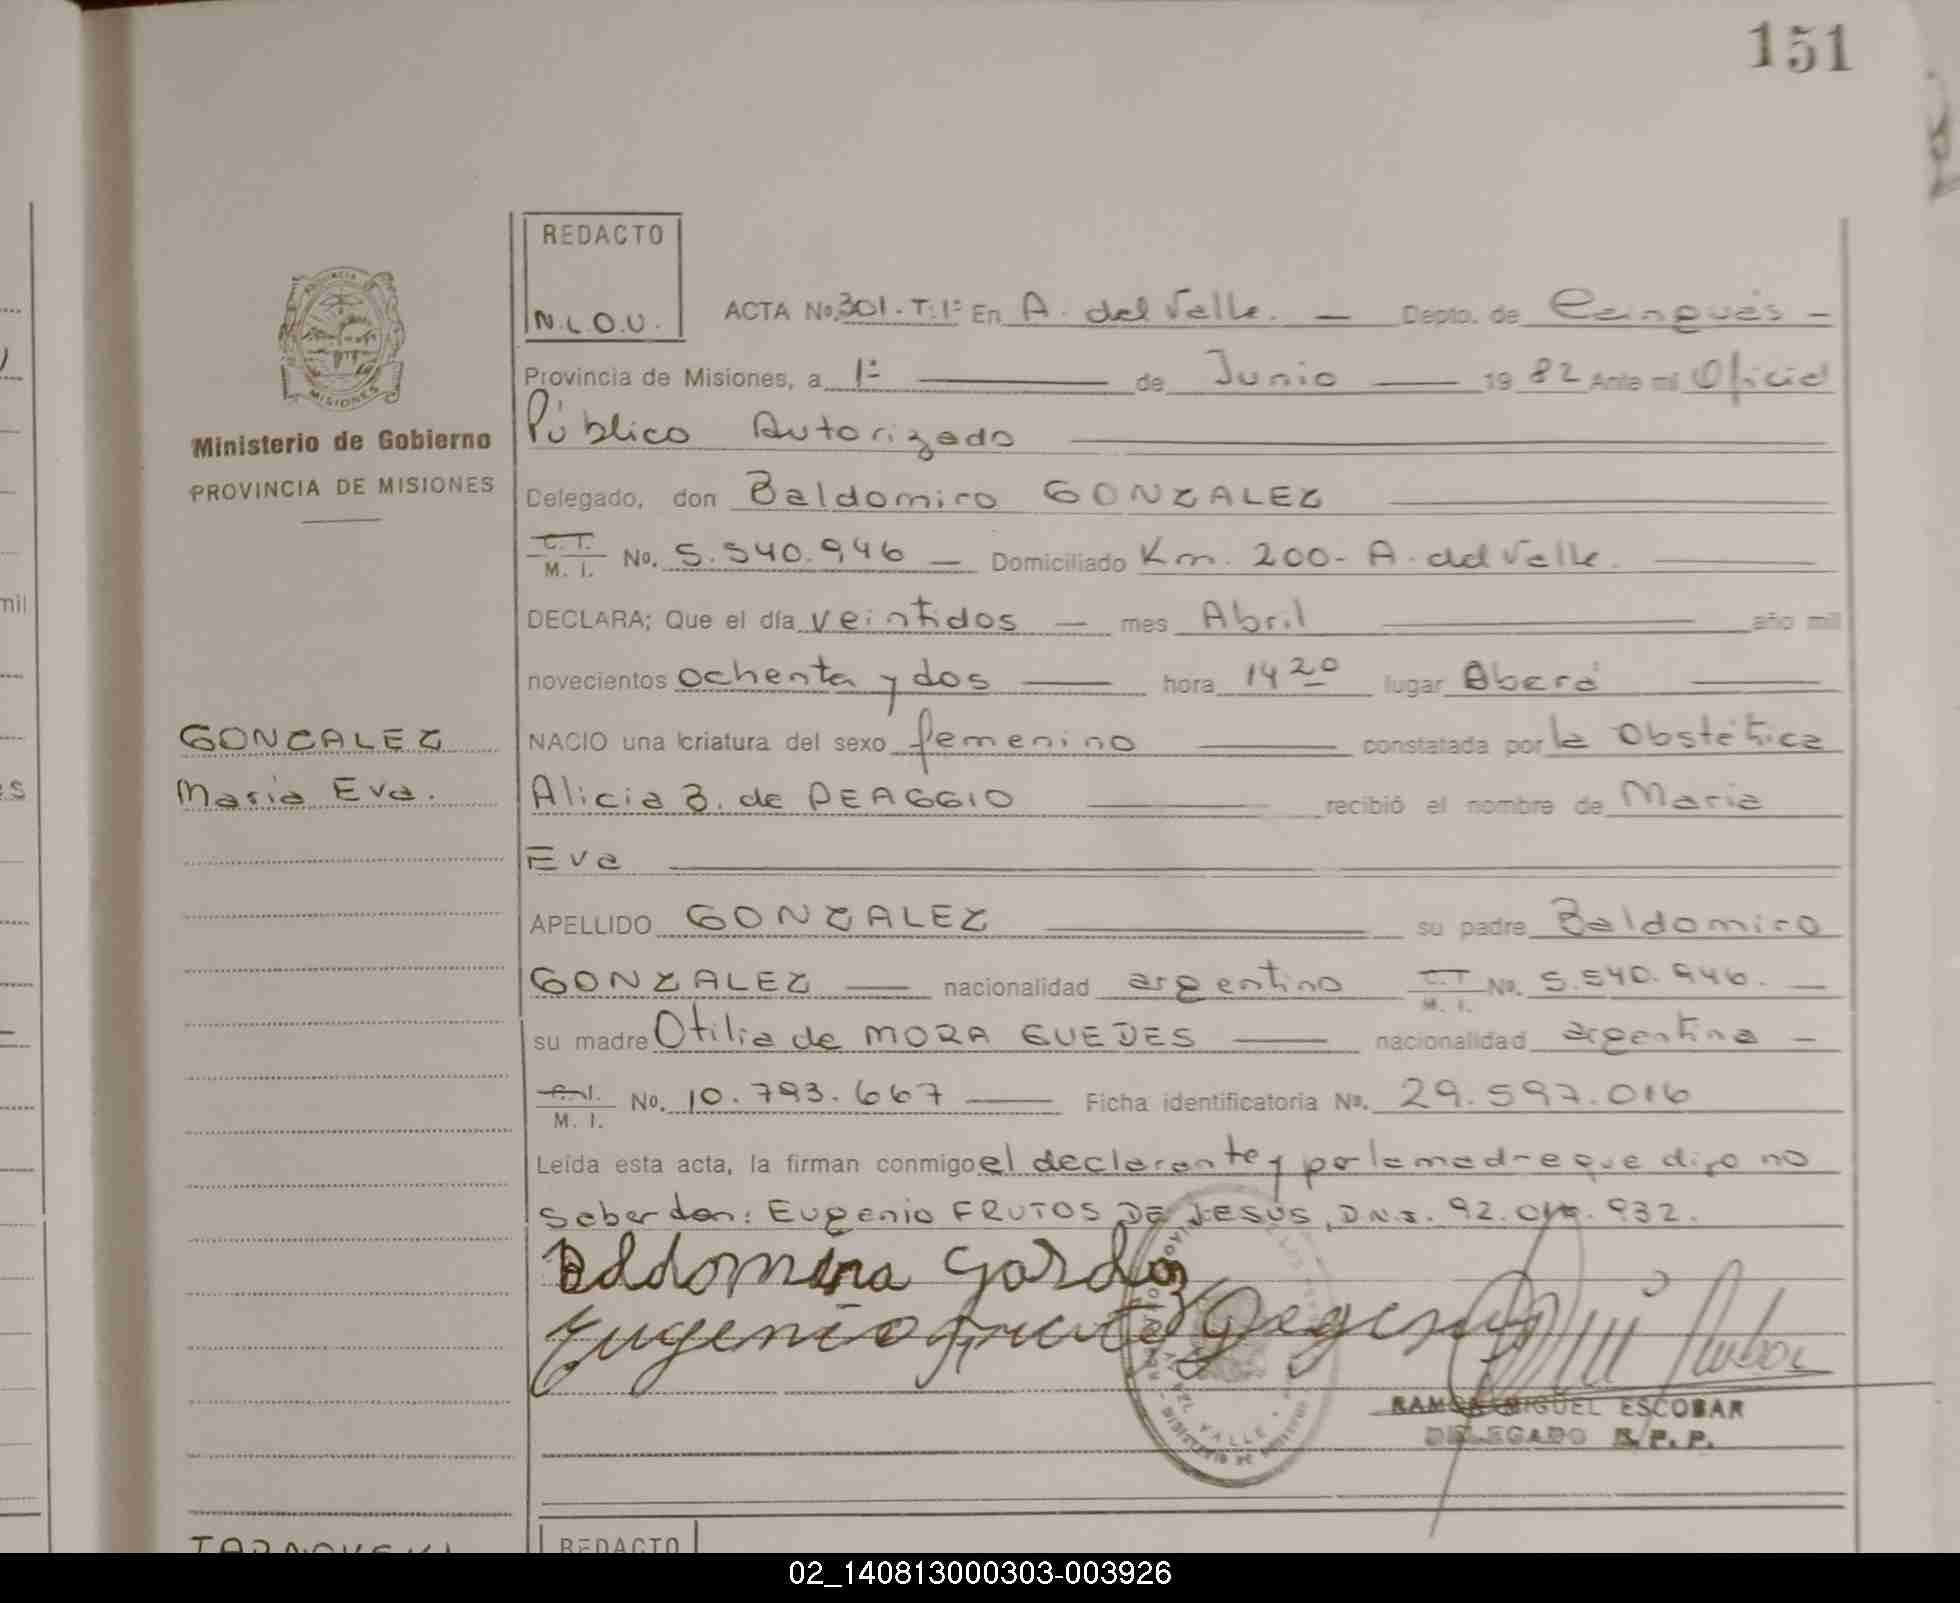 151
REDACTO
N.L.O.U.
ACTA No. 301.T.1º En A. del Valle. — Depto. de Cainguás —
Provincia de Misiones, a 1º — de Junio — 1982 Ante mi Oficial
Público Autorizado
Delegado, don Baldomiro GONZALEZ
C. T.
M. I. No. 5.540.946 — Domiciliado Km. 200- A. del Valle.
DECLARA; Que el día veintidos — mes Abril — año mil
novecientos ochenta y dos — hora 14 20 lugar Oberá —
NACIO una criatura del sexo femenino — constatada por la Obstétrica
Alicia B. de PEAGGIO — recibió el nombre de Maria
Eva
APELLIDO GONZALEZ — su padre Baldomiro
GONZALEZ — nacionalidad argentino C.T
M. I. No. 5.540.946. —
su madre Otilia de MORA GUEDES — nacionalidad argentina —
M. I. No. 10.793.667 — Ficha identificatoria No. 29.597.016
Leída esta acta, la firman conmigo el declarante y por la madre que dijo no
saber don: Eugenio FRUTOS DE JESUS, D.N.I. 92.932.
RAMON MIGUEL ESCOBAR
DELEGADO R.P.P.
PROVINCIA
MISIONES
Ministerio de Gobierno
PROVINCIA DE MISIONES
GONZALEZ
Maria Eva.
mil
REDACTO
02_140813000303-003926